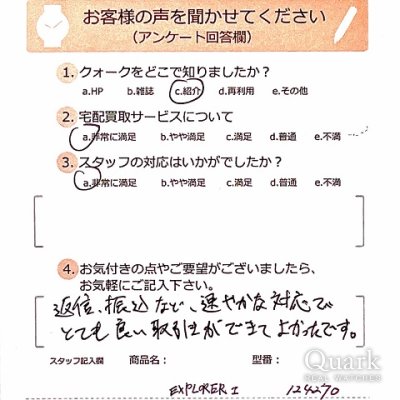 お客様の声を聞かせてください
(アンケート回答欄)
1. クォークをどこで知りましたか?
a.HP b.雑誌 c.紹介 d.再利用 e.その他
2. 宅配買取サービスについて
a.非常に満足 b.やや満足 c.満足 d.普通 e.不満
3. スタッフの対応はいかがでしたか?
a.非常に満足 b.やや満足 c.満足 d.普通 e.不満
4. お気付きの点やご要望がございましたら、
お気軽にご記入下さい。
返信、振込など、速やかな対応で
とても良い取引ができてよかったです。
スタッフ記入欄 商品名: 型番:
EXPLORER I 124270
Quark
REAL WATCHES